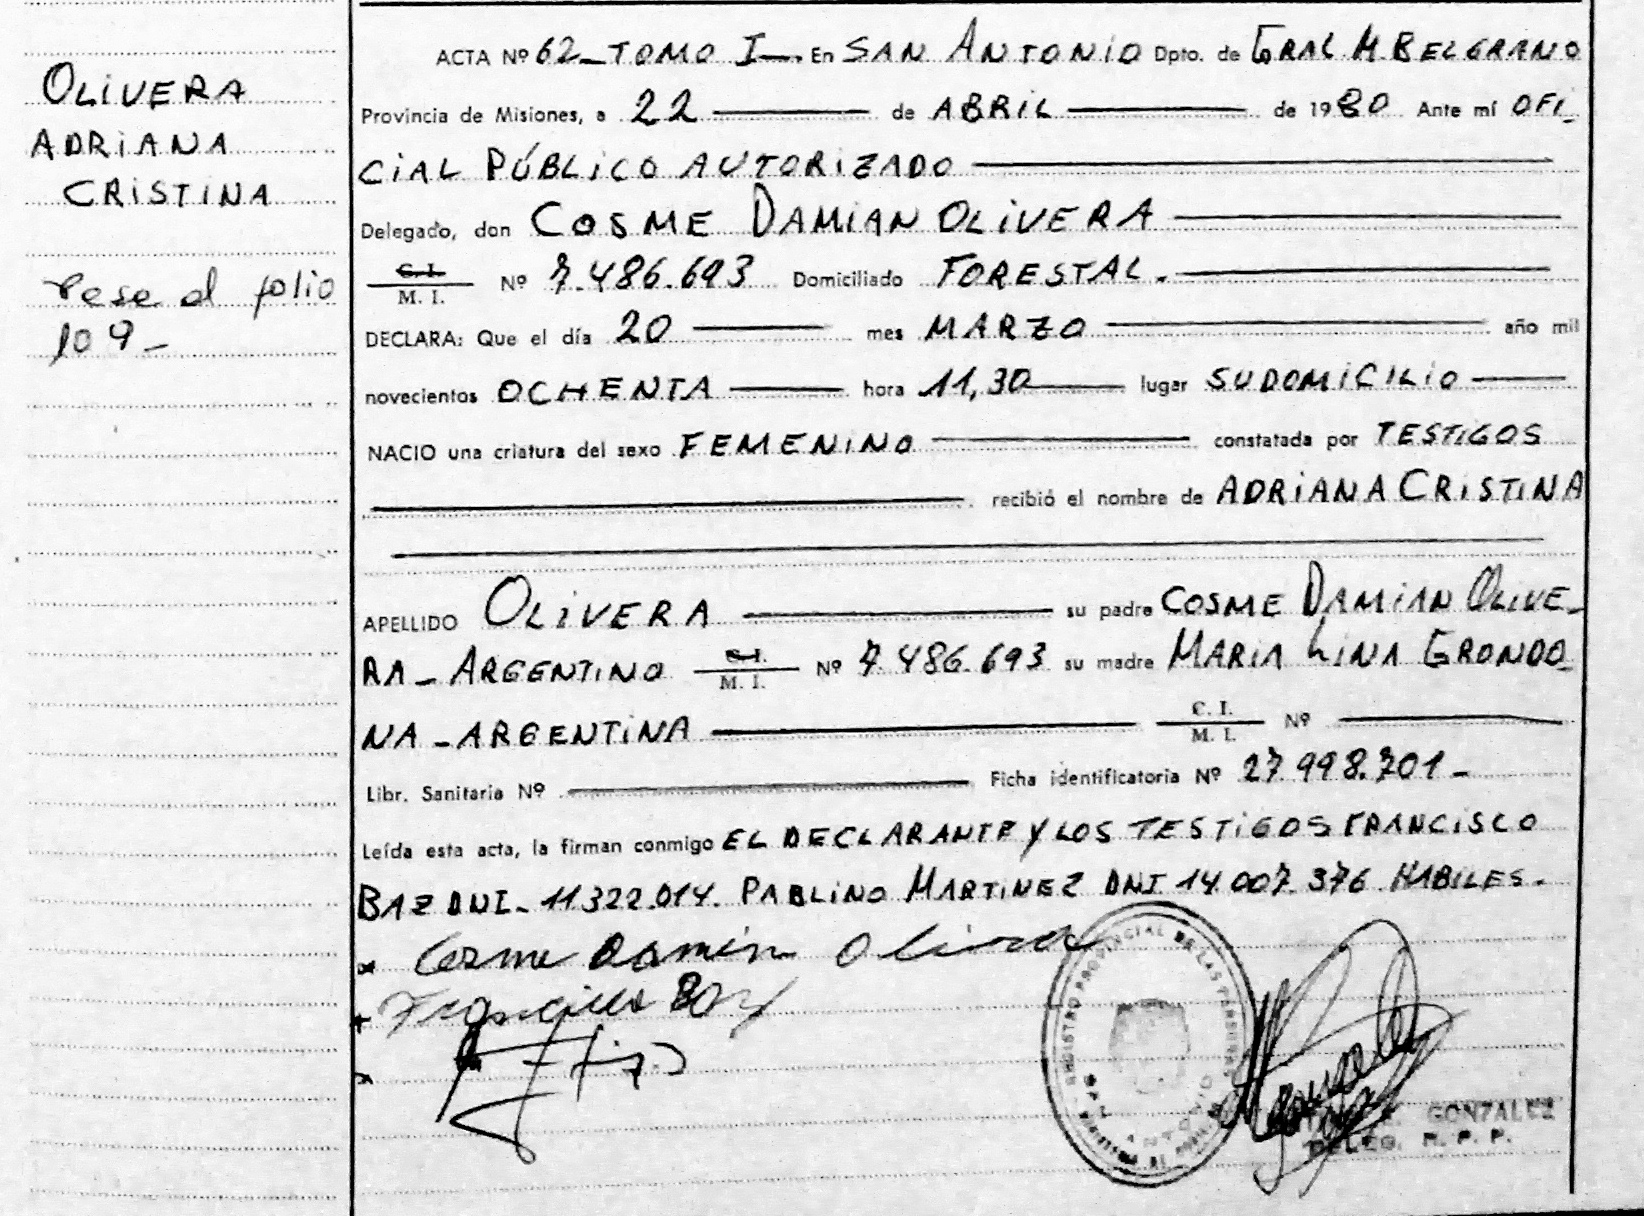 OLIVERA
ADRIANA
CRISTINA
Pase al folio
109-
ACTA Nº 62_TOMO I_. En SAN ANTONIO Dpto. de GRAL M BELGRANO
Provincia de Misiones, a 22 de ABRIL de 1980 Ante mí OFI_
CIAL PÚBLICO AUTORIZADO
Delegado, don COSME DAMIAN OLIVERA
C. I.
M. I. Nº 7.486.693 Domiciliado FORESTAL.
DECLARA: Que el día 20 mes MARZO año mil
novecientos OCHENTA hora 11,30 lugar SU DOMICILIO
NACIO una criatura del sexo FEMENINO constatada por TESTIGOS
recibió el nombre de ADRIANA CRISTINA
APELLIDO OLIVERA su padre COSME DAMIAN OLIVE_
RA_ARGENTINO C. I. M. I. Nº 7.486.693 su madre MARIA LINA GRONDO_
NA_ARGENTINA C. I. M. I. Nº
Libr. Sanitaria Nº Ficha identificatoria Nº 27 998.701-
Leída esta acta, la firman conmigo EL DECLARANTE Y LOS TESTIGOS FRANCISCO
BAZ DNI_11322.014. PABLINO MARTINEZ DNI 14 007.376 HABILES.
Cosme Damian Olivera
Francisco Baz
REGISTRO PROVINCIAL DE LAS PERSONAS
SAN ANTONIO
GONZALEZ
DELEG. R. P. P.